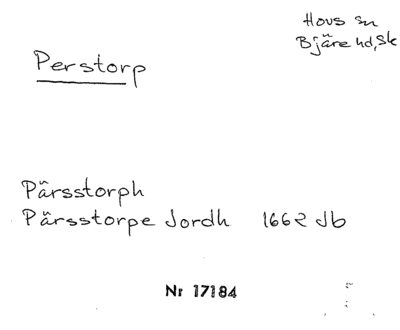 Hovs sn
Bjäre hd, Sk
Perstorp
Pårsstorph
Pårsstorpe Jordh 1662 Jb
Nr 17184